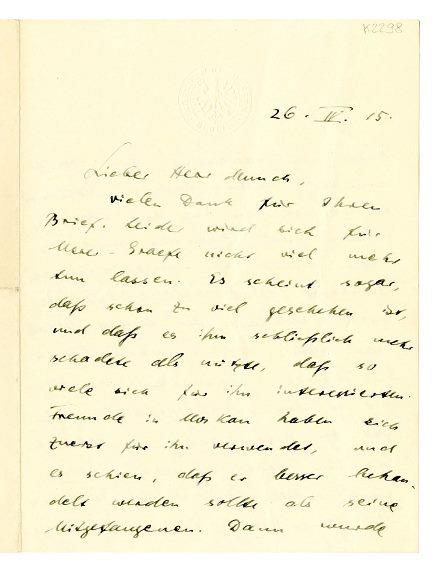 K2298
26. IV. 15.
Lieber Herr Munch,
vielen Dank für Ihren
Brief. Leider wird sich für
Meier-Graefe nicht viel mehr
tun lassen. Es scheint sogar,
daß schon zu viel geschehen ist,
und daß es ihm schließlich mehr
schadete als nützte, daß so
viele sich für ihn interessierten.
Freunde in Moskau haben sich
zuerst für ihn verwendet, und
es schien, daß er besser behan-
delt werden sollte als seine
Mitgefangenen. Dann wurde